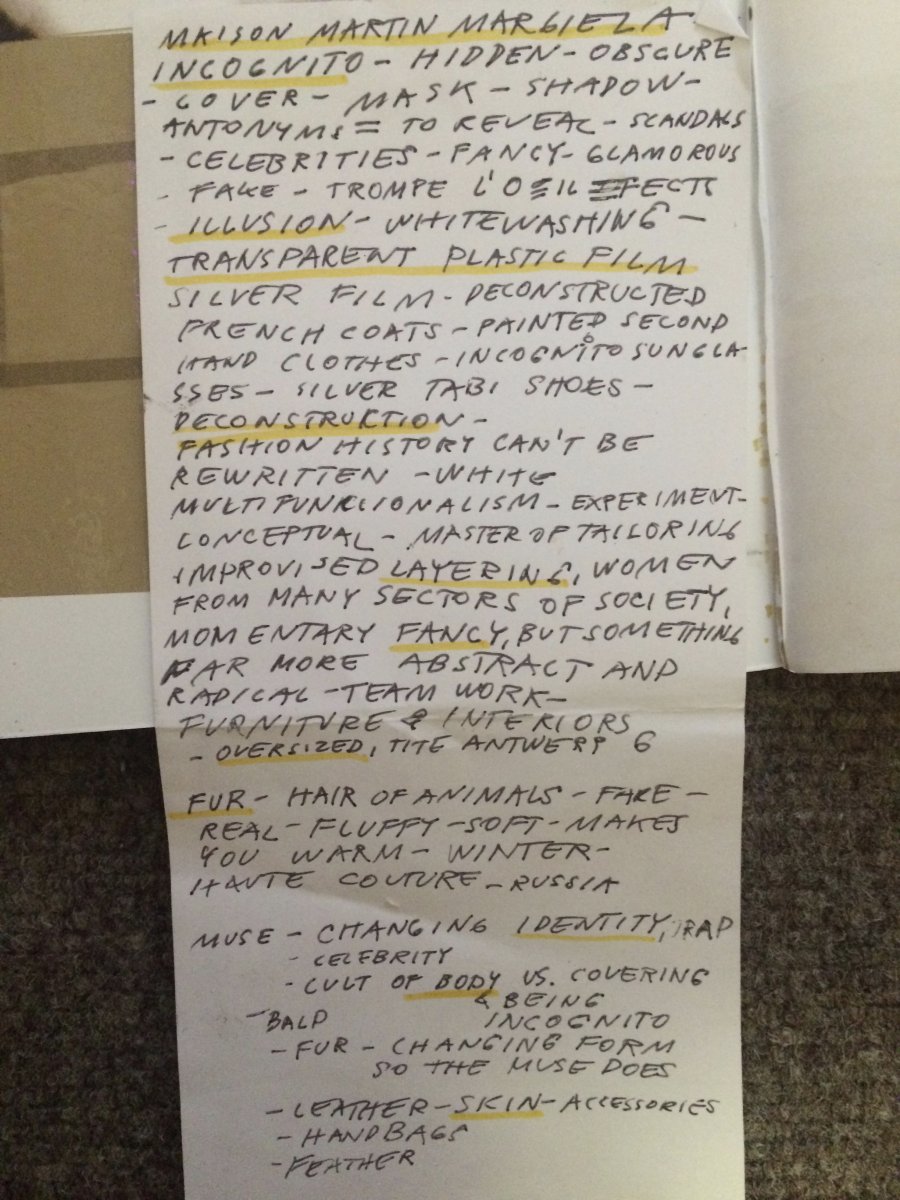 MAISON MARTIN MARGIELA
INCOGNITO - HIDDEN - OBSCURE
- COVER - MASK - SHADOW -
ANTONYMS = TO REVEAL - SCANDALS
- CELEBRITIES - FANCY - GLAMOROUS
- FAKE - TROMPE L'OEIL EFECTS
- ILLUSION - WHITEWASHING -
TRANSPARENT PLASTIC FILM
SILVER FILM - DECONSTRUCTED
FRENCH COATS - PAINTED SECOND
HAND CLOTHES - INCOGNITO SUNGLA-
SSES - SILVER TABI SHOES -
DECONSTRUKTION -
FASHION HISTORY CAN'T BE
REWRITTEN - WHITE
MULTIFUNKCIONALISM - EXPERIMENT-
CONCEPTUAL - MASTER OF TAILORING
IMPROVISED LAYERING, WOMEN
FROM MANY SECTORS OF SOCIETY,
MOMENTARY FANCY, BUT SOMETHING
FAR MORE ABSTRACT AND
RADICAL - TEAM WORK -
FURNITURE & INTERIORS
- OVERSIZED, TITE ANTWERP 6
FUR - HAIR OF ANIMALS - FAKE -
REAL - FLUFFY - SOFT - MAKES
YOU WARM - WINTER -
HAUTE COUTURE - RUSSIA
MUSE - CHANGING IDENTITY, RAP
- CELEBRITY
- CULT OF BODY VS. COVERING
& BEING
- BALD INCOGNITO
- FUR - CHANGING FORM
SO THE MUSE DOES
- LEATHER - SKIN - ACCESSORIES
- HANDBAGS
- FEATHER